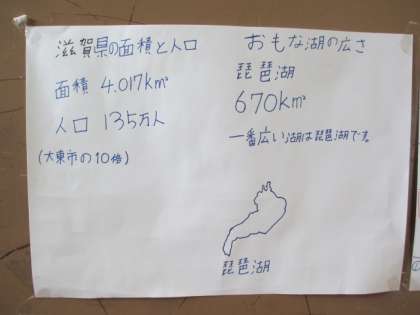 滋賀県の面積と人口
面積 4.017km²
人口 135万人
(大東市の10倍)
おもな湖の広さ
琵琶湖
670km²
一番広い湖は琵琶湖です。
琵琶湖